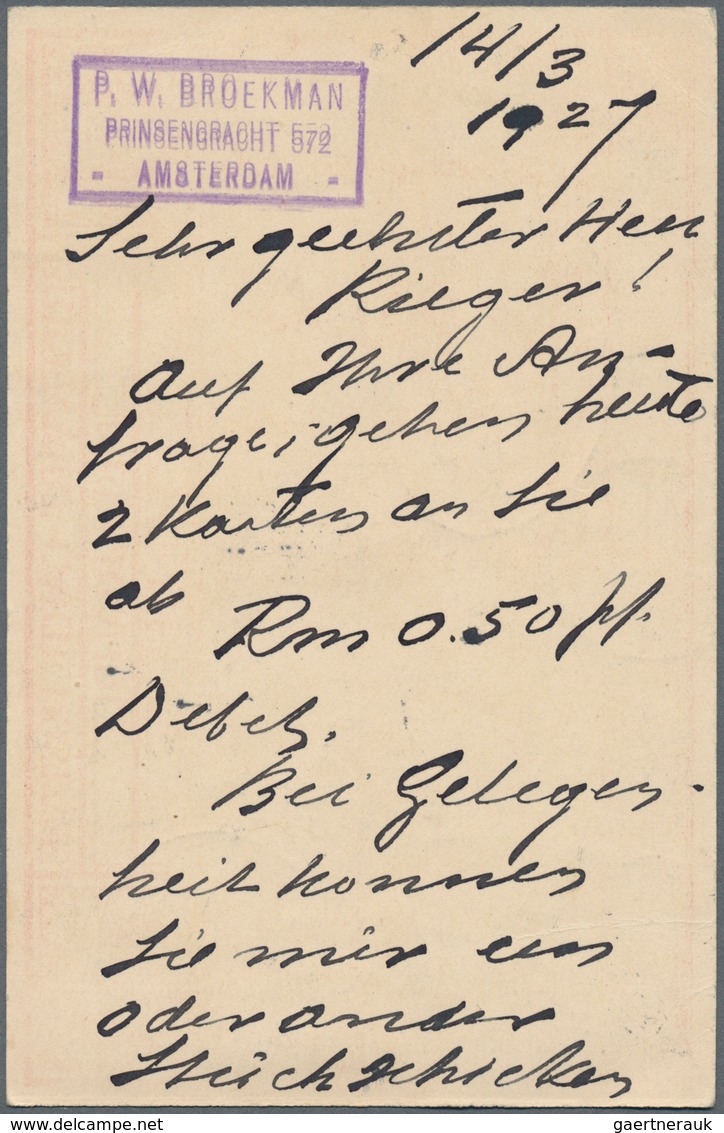 14/3
1927
P. W. BROEKMAN
PRINSENGRACHT 572
- AMSTERDAM -
Sehr geehrter Herr
Rieger!
Auf Ihre An-
frage gehen heute
2 Karten an Sie
ab
Rm 0.50 pf.
Debet.
Bei Gelegen-
heit konnen
Sie mir ein
oder ander
Stück schicken
gaertnerauk